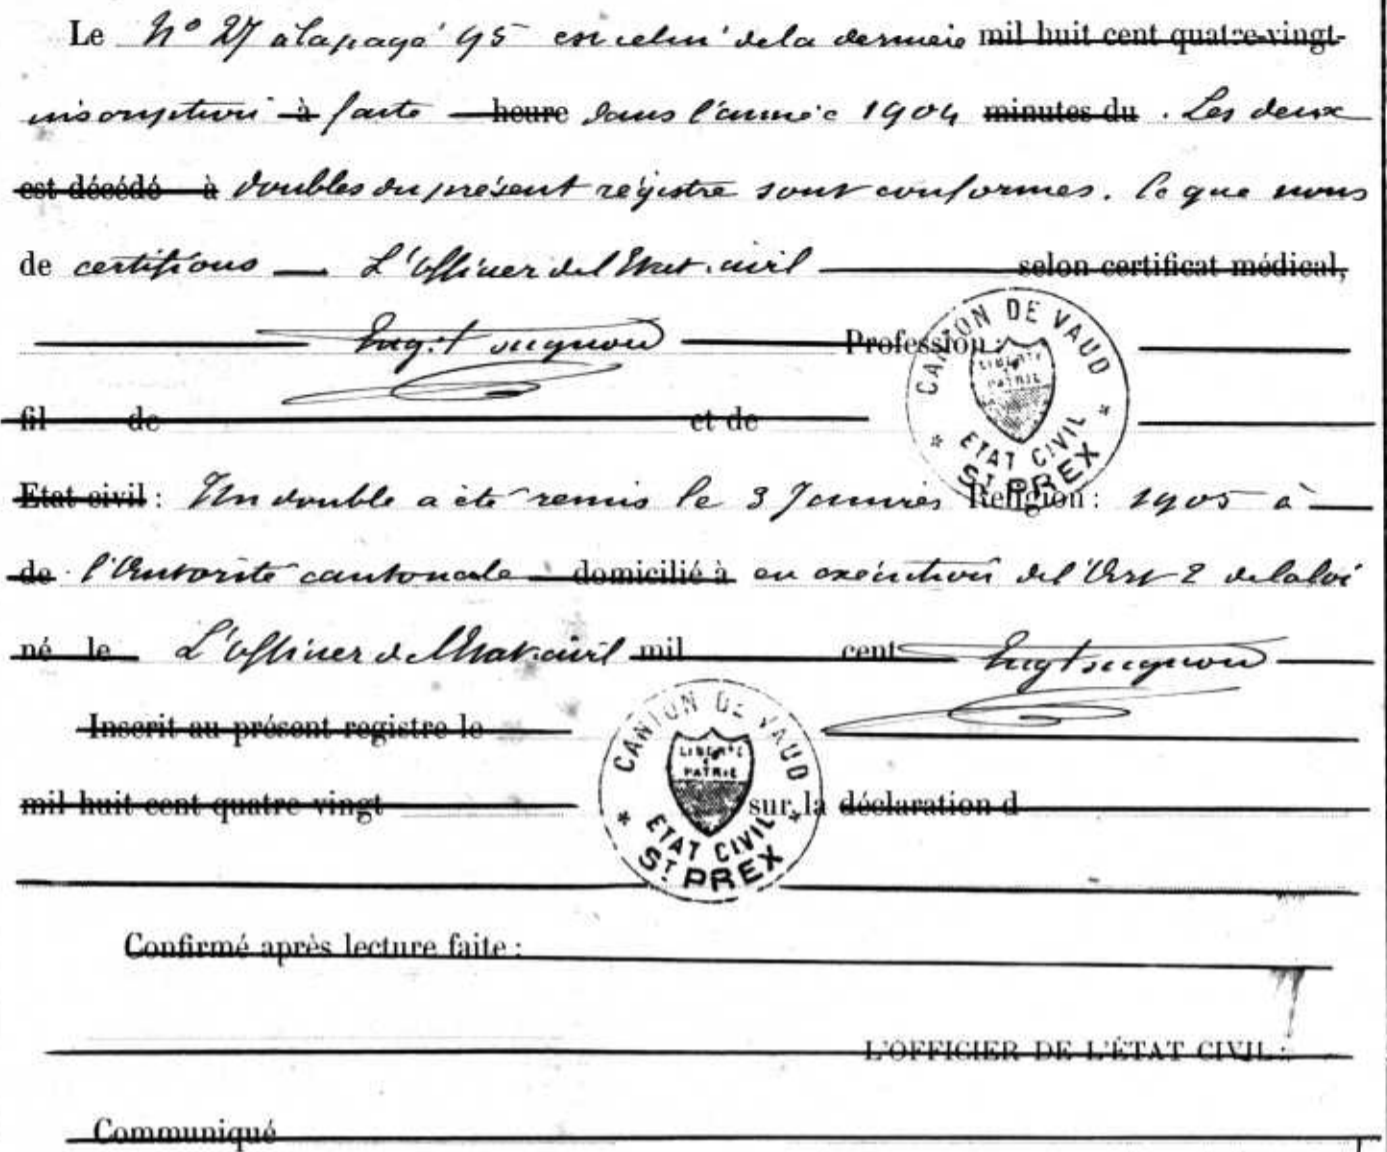 Le N° 27 à la page 95 est celui de la dernière mil huit cent quatre-vingt-
inscription à faite heure dans l'année 1904 minutes du . Les deux
est décédé à doubles du présent régistre sont conformes. Ce que nous
de certifions L'officier de l'Etat. civil selon certificat médical,
Profession :
CANTON DE VAUD
LIBERTÉ ET PATRIE
ETAT CIVIL
ST PREX
fil de et de
Etat civil : Un double a été remis le 3 Janvier Religion : 1905 à
de l'Autorité cantonale domicilié à en exécution de l'Art 2 de la loi
né le L'officier de l'Etat. civil mil cent
Inscrit au présent registre le
CANTON DE VAUD
LIBERTÉ ET PATRIE
ETAT CIVIL
ST PREX
mil huit cent quatre vingt sur la déclaration d
Confirmé après lecture faite :
L'OFFICIER DE L'ÉTAT CIVIL :
Communiqué